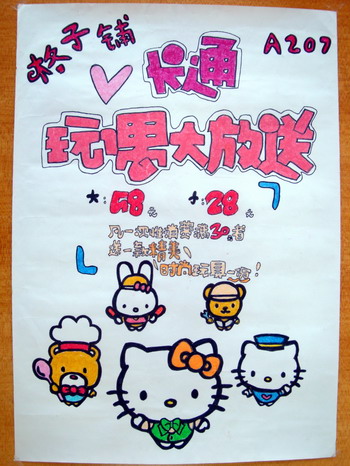 格子铺
A207
卡通
玩具大放送
大:48元 小:28元
凡一次性消费满30元者
送一款精美
时尚玩具一套!